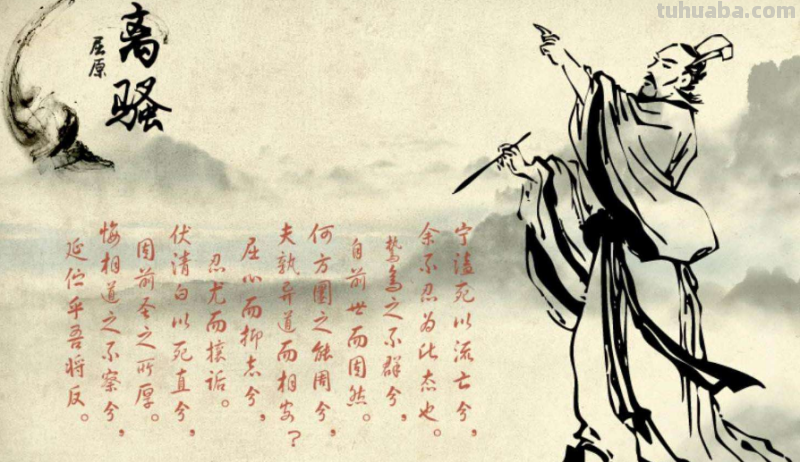 离骚
屈原
宁溘死以流亡兮，
余不忍为此态也。
鸷鸟之不群兮，
自前世而固然。
何方圜之能周兮，
夫孰异道而相安？
屈心而抑志兮，
忍尤而攘诟。
伏清白以死直兮，
固前圣之所厚。
悔相道之不察兮，
延伫乎吾将反。
tuhuaba.com